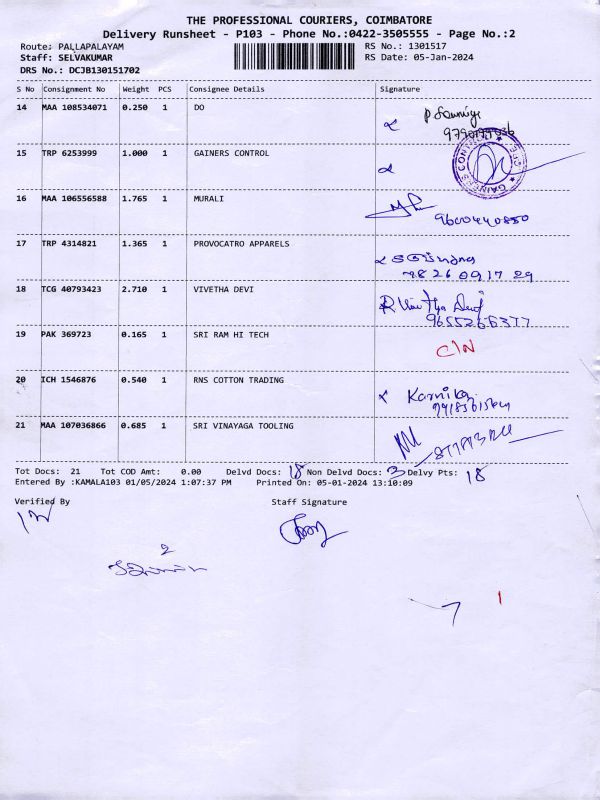 THE PROFESSIONAL COURIERS, COIMBATORE
Delivery Runsheet - P103 - Phone No.:0422-3505555 - Page No.:2
Route: PALLAPALAYAM RS No.: 1301517
Staff: SELVAKUMAR RS Date: 05-Jan-2024
DRS No.: DCJB130151702
S No Consignment No Weight PCS Consignee Details Signature
14 MAA 108534071 0.250 1 DO
15 TRP 6253999 1.000 1 GAINERS CONTROL
16 MAA 106556588 1.765 1 MURALI
9600440850
17 TRP 4314821 1.365 1 PROVOCATRO APPARELS
98260917 29
18 TCG 40793423 2.710 1 VIVETHA DEVI
9655266377
19 PAK 369723 0.165 1 SRI RAM HI TECH C/N
20 ICH 1546876 0.540 1 RNS COTTON TRADING
21 MAA 107036866 0.685 1 SRI VINAYAGA TOOLING
Tot Docs: 21 Tot COD Amt: 0.00 Delvd Docs: 18 Non Delvd Docs: 3 Delvy Pts: 18
Entered By :KAMALA103 01/05/2024 1:07:37 PM Printed On: 05-01-2024 13:10:09
Verified By Staff Signature
2
7 1